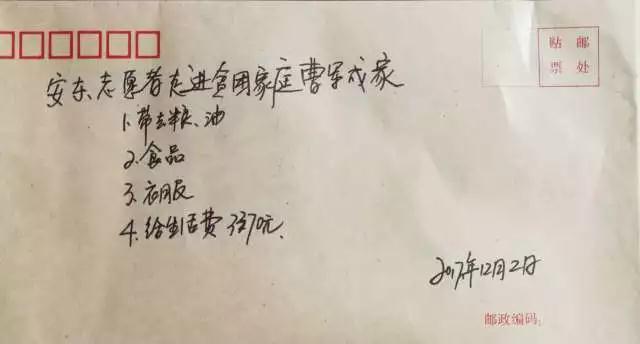 贴 邮
票 处
安东志愿者走进贫困家庭曹军成家
1、带去米、油
2、食品
3、衣服
4、给生活费370元、
2017年12月2日
邮政编码：